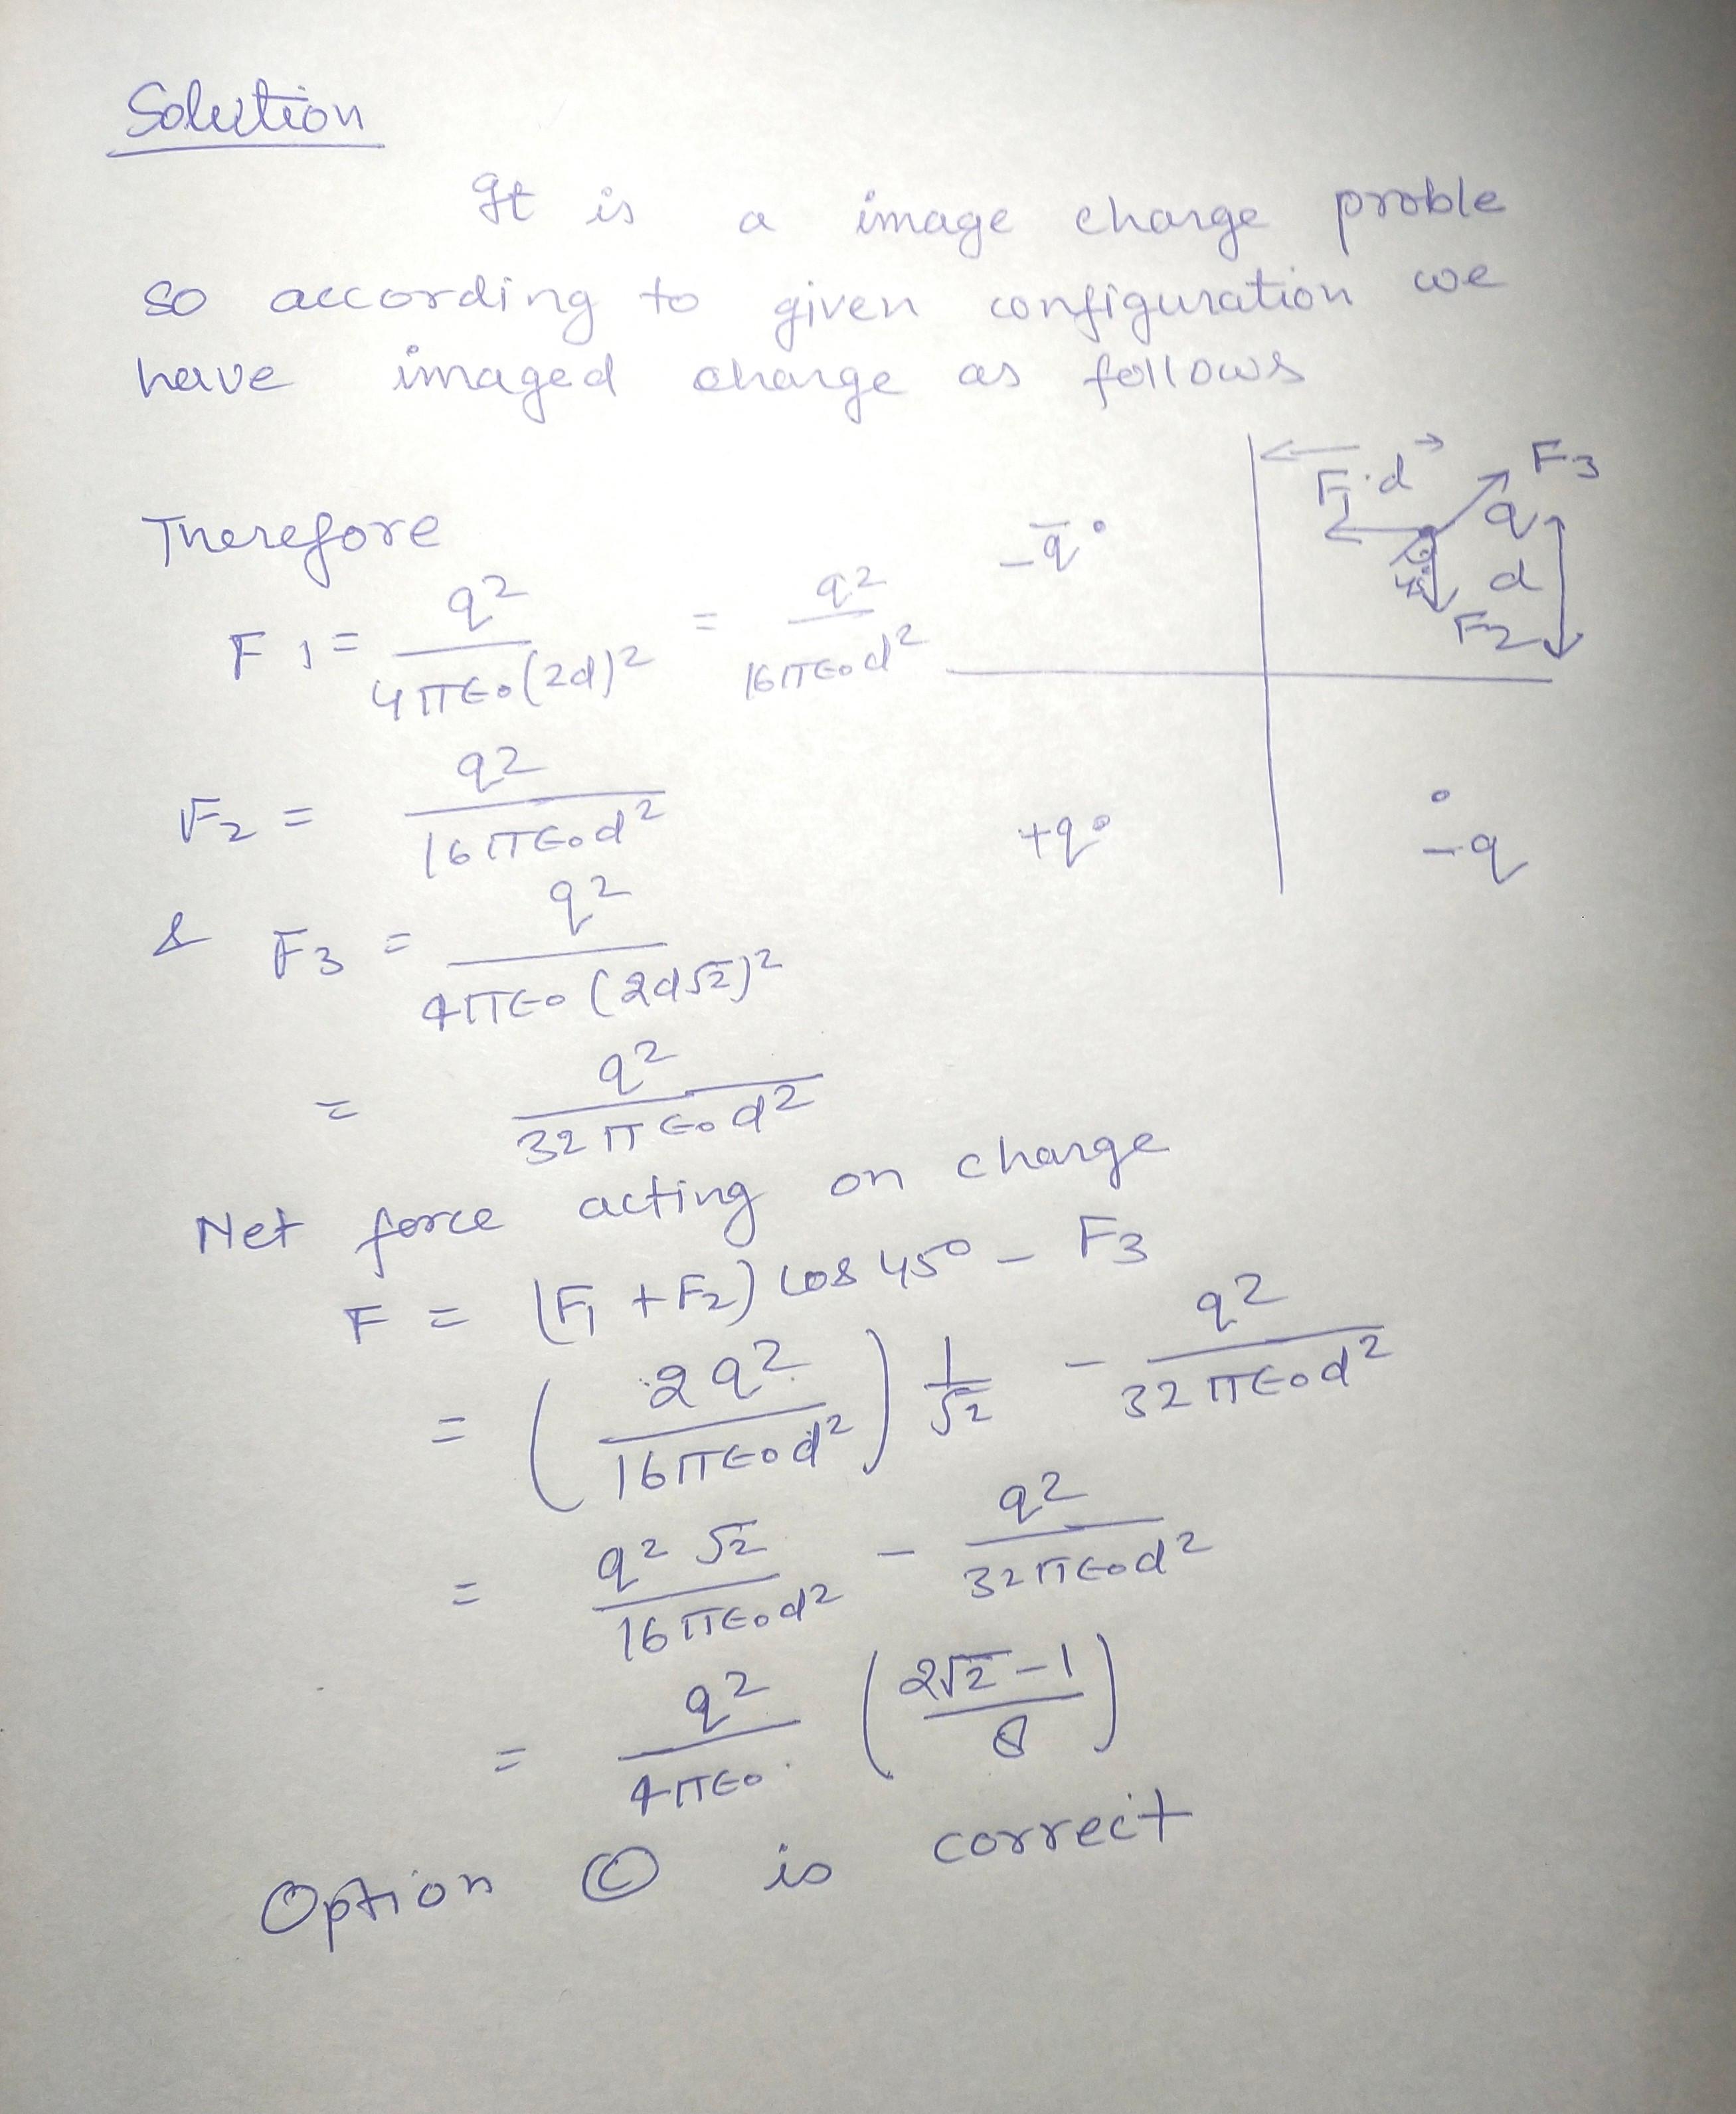 Solution
It is a image charge proble
so according to given configuration we
have imaged charge as follows
Therefore
F1 = q² / 4π∈0(2d)² = q² / 16π∈0d²
F1 d F3
-q q
d
F2
45
+q -q
F2 = q² / 16π∈0d²
& F3 = q² / 4π∈0(2d√2)²
= q² / 32π∈0d²
Net force acting on charge
F = (F1 + F2) cos 45° - F3
= (2q² / 16π∈0d²) 1/√2 - q² / 32π∈0d²
= q²√2 / 16π∈0d² - q² / 32π∈0d²
= q² / 4π∈0 (2√2-1 / 8)
Option Ⓒ is correct